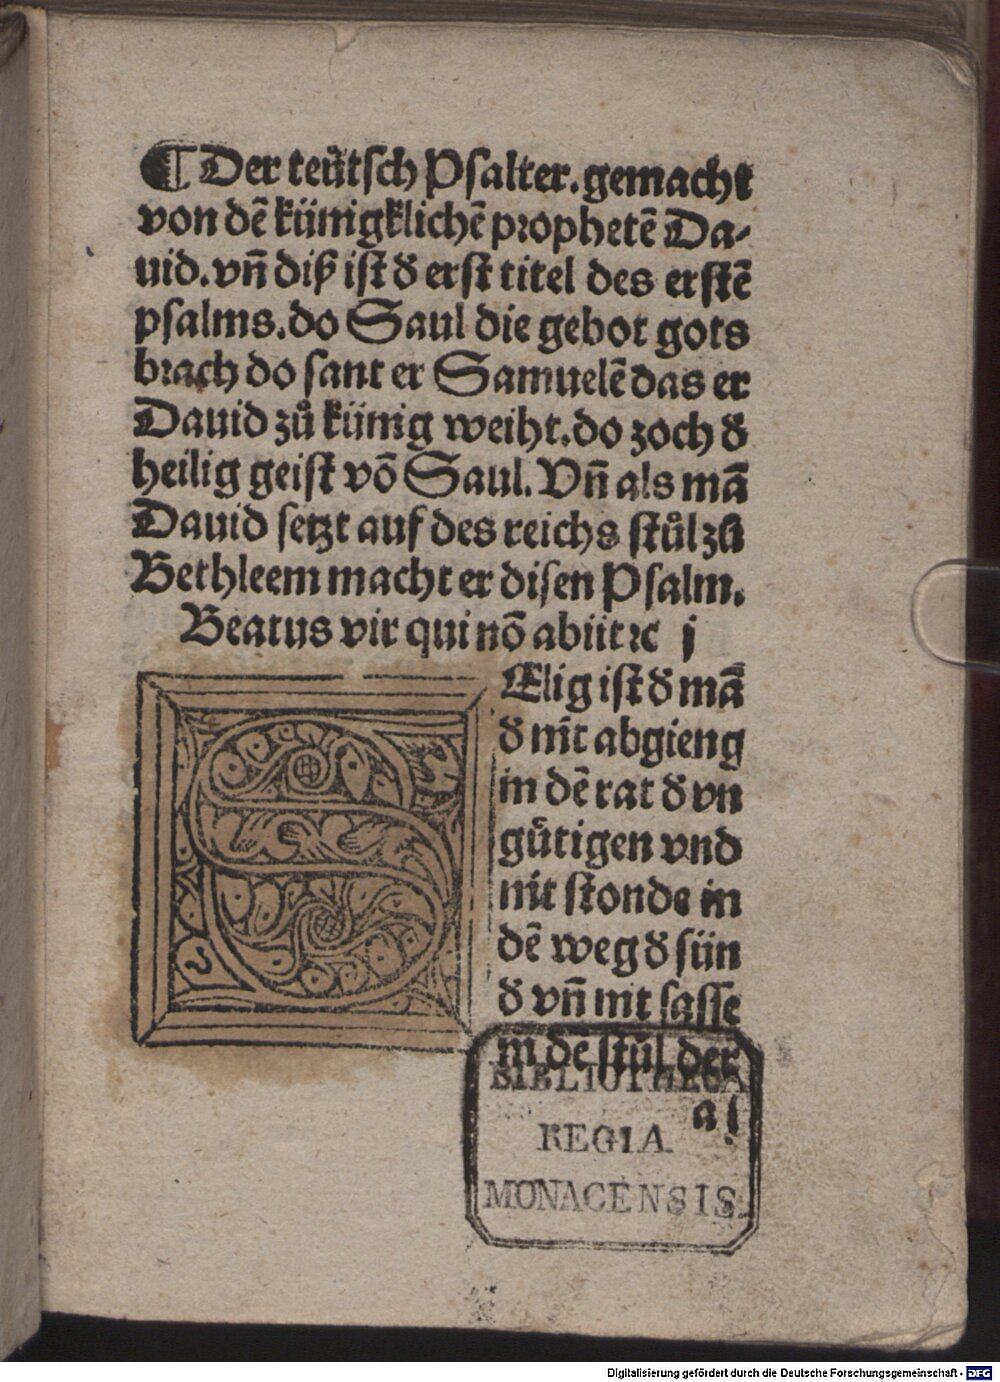 ¶ Der teütsch Psalter. gemacht
von dē künigklichē prophetē Da⸗
uid. vn̄ diß ist d̕ erst titel des erstē
psalms. do Saul die gebot gots
brach do sant er Samuelē das er
Dauid zů künig weiht. do zoch d̕
heilig geist vō Saul. Vn̄ als mā
Dauid setzt auf des reichs stůl zů
Bethleem macht er disen Psalm.
Beatus vir qui nō abiit ⁊c j
SElig ist d̕ mā
d̕ nit abgieng
in dē rat d̕ vn
gütigen vnd
nit stonde in
dē weg d̕ sün
d̕ vn̄ nit sasse
in dē stůl der
a j
BIBLIOTHECA
REGIA
MONACENSIS.
Digitalisierung gefördert durch die Deutsche Forschungsgemeinschaft - DFG